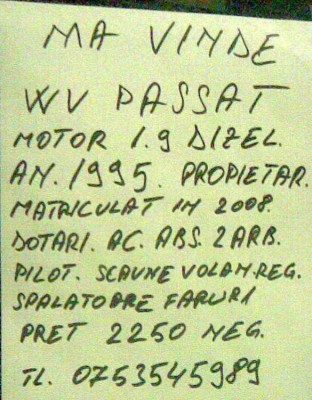 MA VINDE
WV PASSAT
MOTOR 1.9 DIZEL.
AN. 1995. PROPIETAR.
MATRICULAT IN 2008.
DOTARI. AC. ABS. 2ARB.
PILOT. SCAUNE VOLAN.REG.
SPALATOARE FARURI
PRET 2250 NEG.
TL. 0753545989